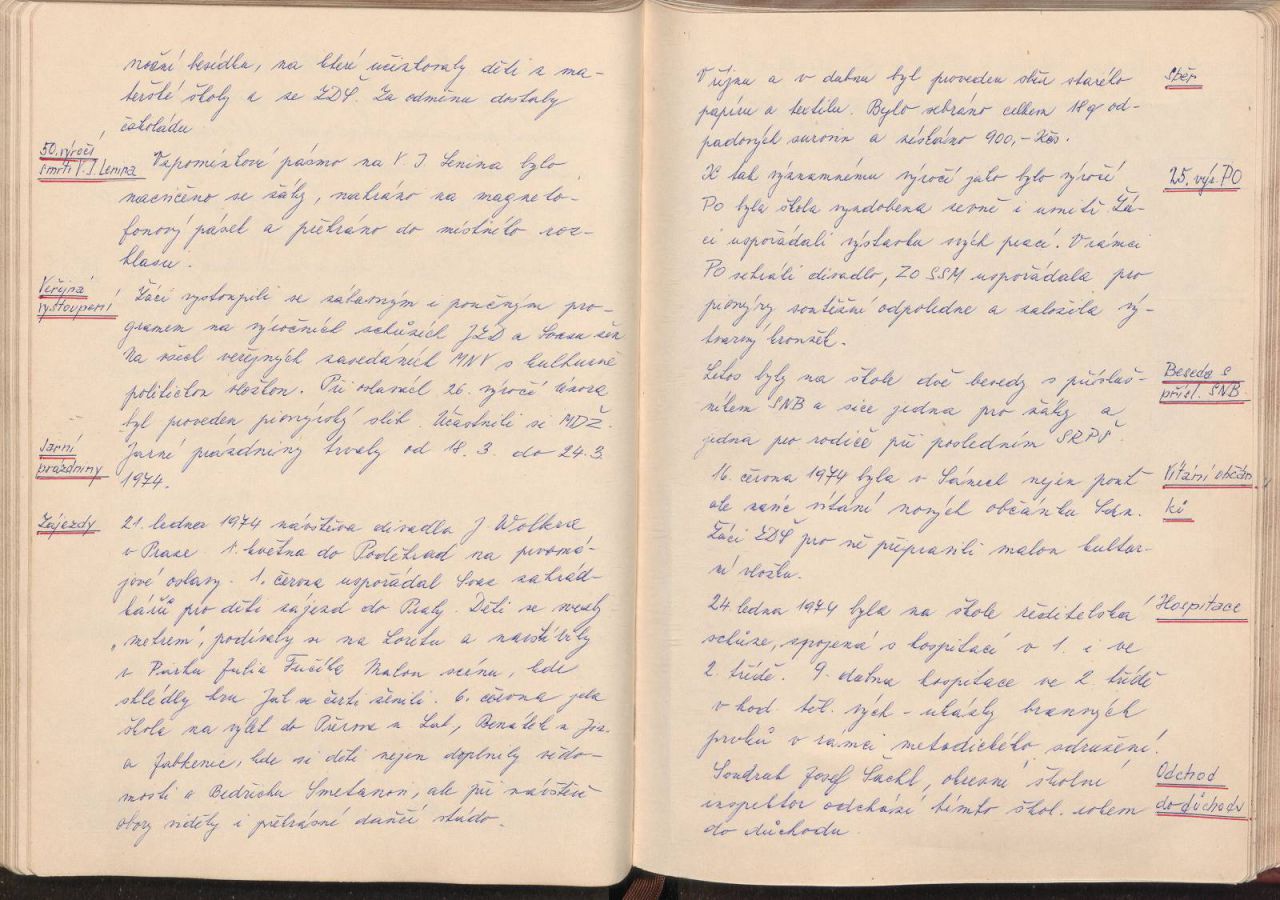 noční besídku, na které účinkovaly děti z ma-
teřské školy a ze ZDŠ. Za odměnu dostaly
čokoládu.
50. výročí
smrti V. I. Lenina
Vzpomínkové pásmo na V. I. Lenina bylo
nacvičeno se žáky, nahráno na magneto-
fonový pásek a přehráno do místního roz-
hlasu.
Veřejná
vystoupení
Žáci vystoupili se zábavným i poučným pro-
gramem na výročních schůzích JZD a Svazu žen
Na všech veřejných zasedáních MNV s kulturně
politickou vložkou. Při oslavách 26. výročí února
byl proveden pionýrský slib. Účastnili se MDŽ.
Jarní
prázdniny
Jarní prázdniny trvaly od 18. 3. do 24.3.
1974.
Zájezdy
21. ledna 1974 návštěva divadla J. Wolkera
v Praze. 1. května do Poděbrad na prvomá-
jové oslavy. 1. června uspořádal Svaz zahrád-
kářů pro děti zájezd do Prahy. Děti se svezly
"metrem", podívaly se na Loretu a navštívily
v Parku Julia Fučíka Malou scénu, kde
shlédly hru Jak se čerti ženili. 6. června jela
škola na výlet do Přerova n. Lab, Benátek n Jiz.
a Jabkenic, kde si děti nejen doplnily vědo-
mosti o Bedřichu Smetanovi, ale při návštěvě
obory viděly i překrásné daňčí stádo.
V říjnu a v dubnu byl proveden sběr starého
papíru a textilu. Bylo sebráno celkem 18 q od-
padových surovin a získáno 900,- Kčs.
Sběr
K tak významnému výročí jako bylo výročí
PO byla škola vyzdobena zevně i uvnitř. Žá-
ci uspořádali výstavku svých prací. V rámci
PO sehráli divadlo, ZO SSM uspořádala pro
pionýry soutěžní odpoledne a založila vý-
tvarný kroužek.
25. výr. PO
Letos byly na škole dvě besedy s přísluš-
níkem SNB a sice jedna pro žáky a
jedna pro rodiče při posledním SRPŠ.
Beseda s
přísl. SNB.
16. června 1974 byla v Sánech nejen pouť
ale také vítání nových občánků Sán.
Žáci ZDŠ pro ně připravili malou kultur-
ní vložku.
Vítání občán
ků
24. ledna 1974 byla na škole ředitelská
schůze, spojená s hospitací v 1. i ve
2. třídě. 9. dubna hospitace ve 2. třídě
v hod. těl. vých - ukázky branných
prvků v rámci metodického sdružení.
Hospitace
Soudruh Josef Šackl, okresní školní
inspektor odchází tímto škol. rokem
do důchodu.
Odchod
do důchodu